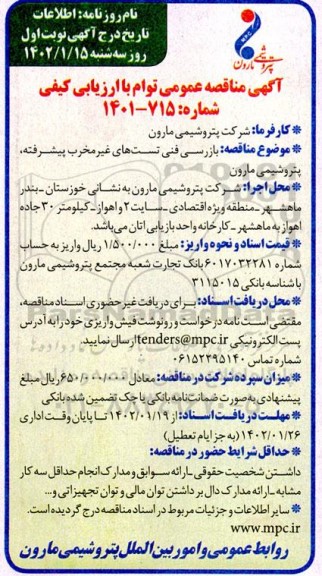 نام روزنامه: اطلاعات
تاریخ درج آگهی نوبت اول
روز سه شنبه ۱۴۰۲/۱/۱۵
پتروشیمی مارون
آگهی مناقصه عمومی توام با ارزیابی کیفی
شماره: ۷۱۵-۱۴۰۱
* کارفرما: شرکت پتروشیمی مارون
* موضوع مناقصه: بازرسی فنی تست‌های غیرمخرب پیشرفته،
پتروشیمی مارون
* محل اجرا: شرکت پتروشیمی مارون به نشانی خوزستان - بندر
ماهشهر - منطقه ویژه اقتصادی - سایت ۲ و اهواز - کیلومتر ۳۰ جاده
اهواز به ماهشهر - کارخانه واحد بازیابی اتان می‌باشد.
* قیمت اسناد و نحوه واریز: مبلغ ۱/۵۰۰/۰۰۰ ریال واریز به حساب
شماره ۶۰۱۷۰۳۲۲۸۱ بانک تجارت شعبه مجتمع پتروشیمی مارون
با شناسه بانکی ۳۱۱۵۰۱۵
* محل دریافت اسناد: برای دریافت غیرحضوری اسناد مناقصه،
مقتضی است نامه درخواست و رونوشت فیش واریزی خود را به آدرس
پست الکترونیکی tenders@mpc.ir ارسال نمایید.
شماره تماس ۰۶۱۵۲۲۹۵۱۴۰
* میزان سپرده شرکت در مناقصه: معادل ۶۵۰/۰۰۰/۰۰۰ ریال مبلغ
پیشنهادی به صورت ضمانت نامه بانکی یا چک تضمین شده بانکی
* مهلت دریافت اسناد: از ۱۴۰۲/۰۱/۱۹ تا پایان وقت اداری
۱۴۰۲/۰۱/۲۶ (به جز ایام تعطیل)
* حداقل شرایط حضور در مناقصه:
داشتن شخصیت حقوقی - ارائه سوابق و مدارک انجام حداقل سه کار
مشابه - ارائه مدارک دال بر داشتن توان مالی و توان تجهیزاتی و...
* سایر اطلاعات و جزئیات مربوط در اسناد مناقصه درج گردیده است.
www.mpc.ir
روابط عمومی و امور بین الملل پتروشیمی مارون